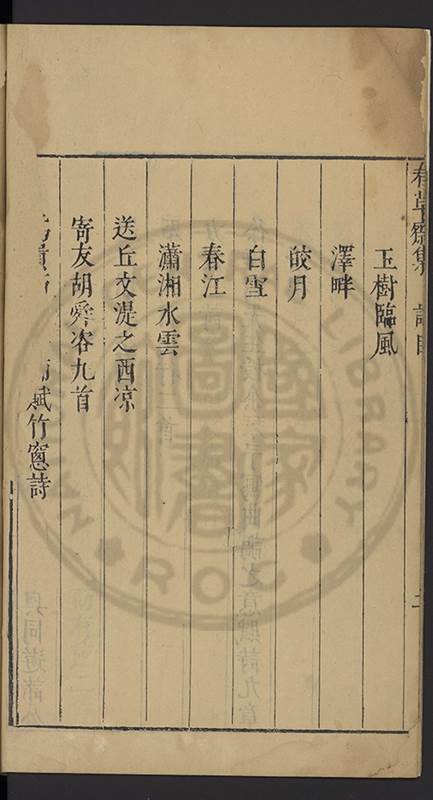 春草齋集 詩目 二
玉樹臨風
澤畔
皎月
白雪
春江
瀟湘水雲
送丘文湜之西凉
寄友胡舜咨九首
賦竹窻詩